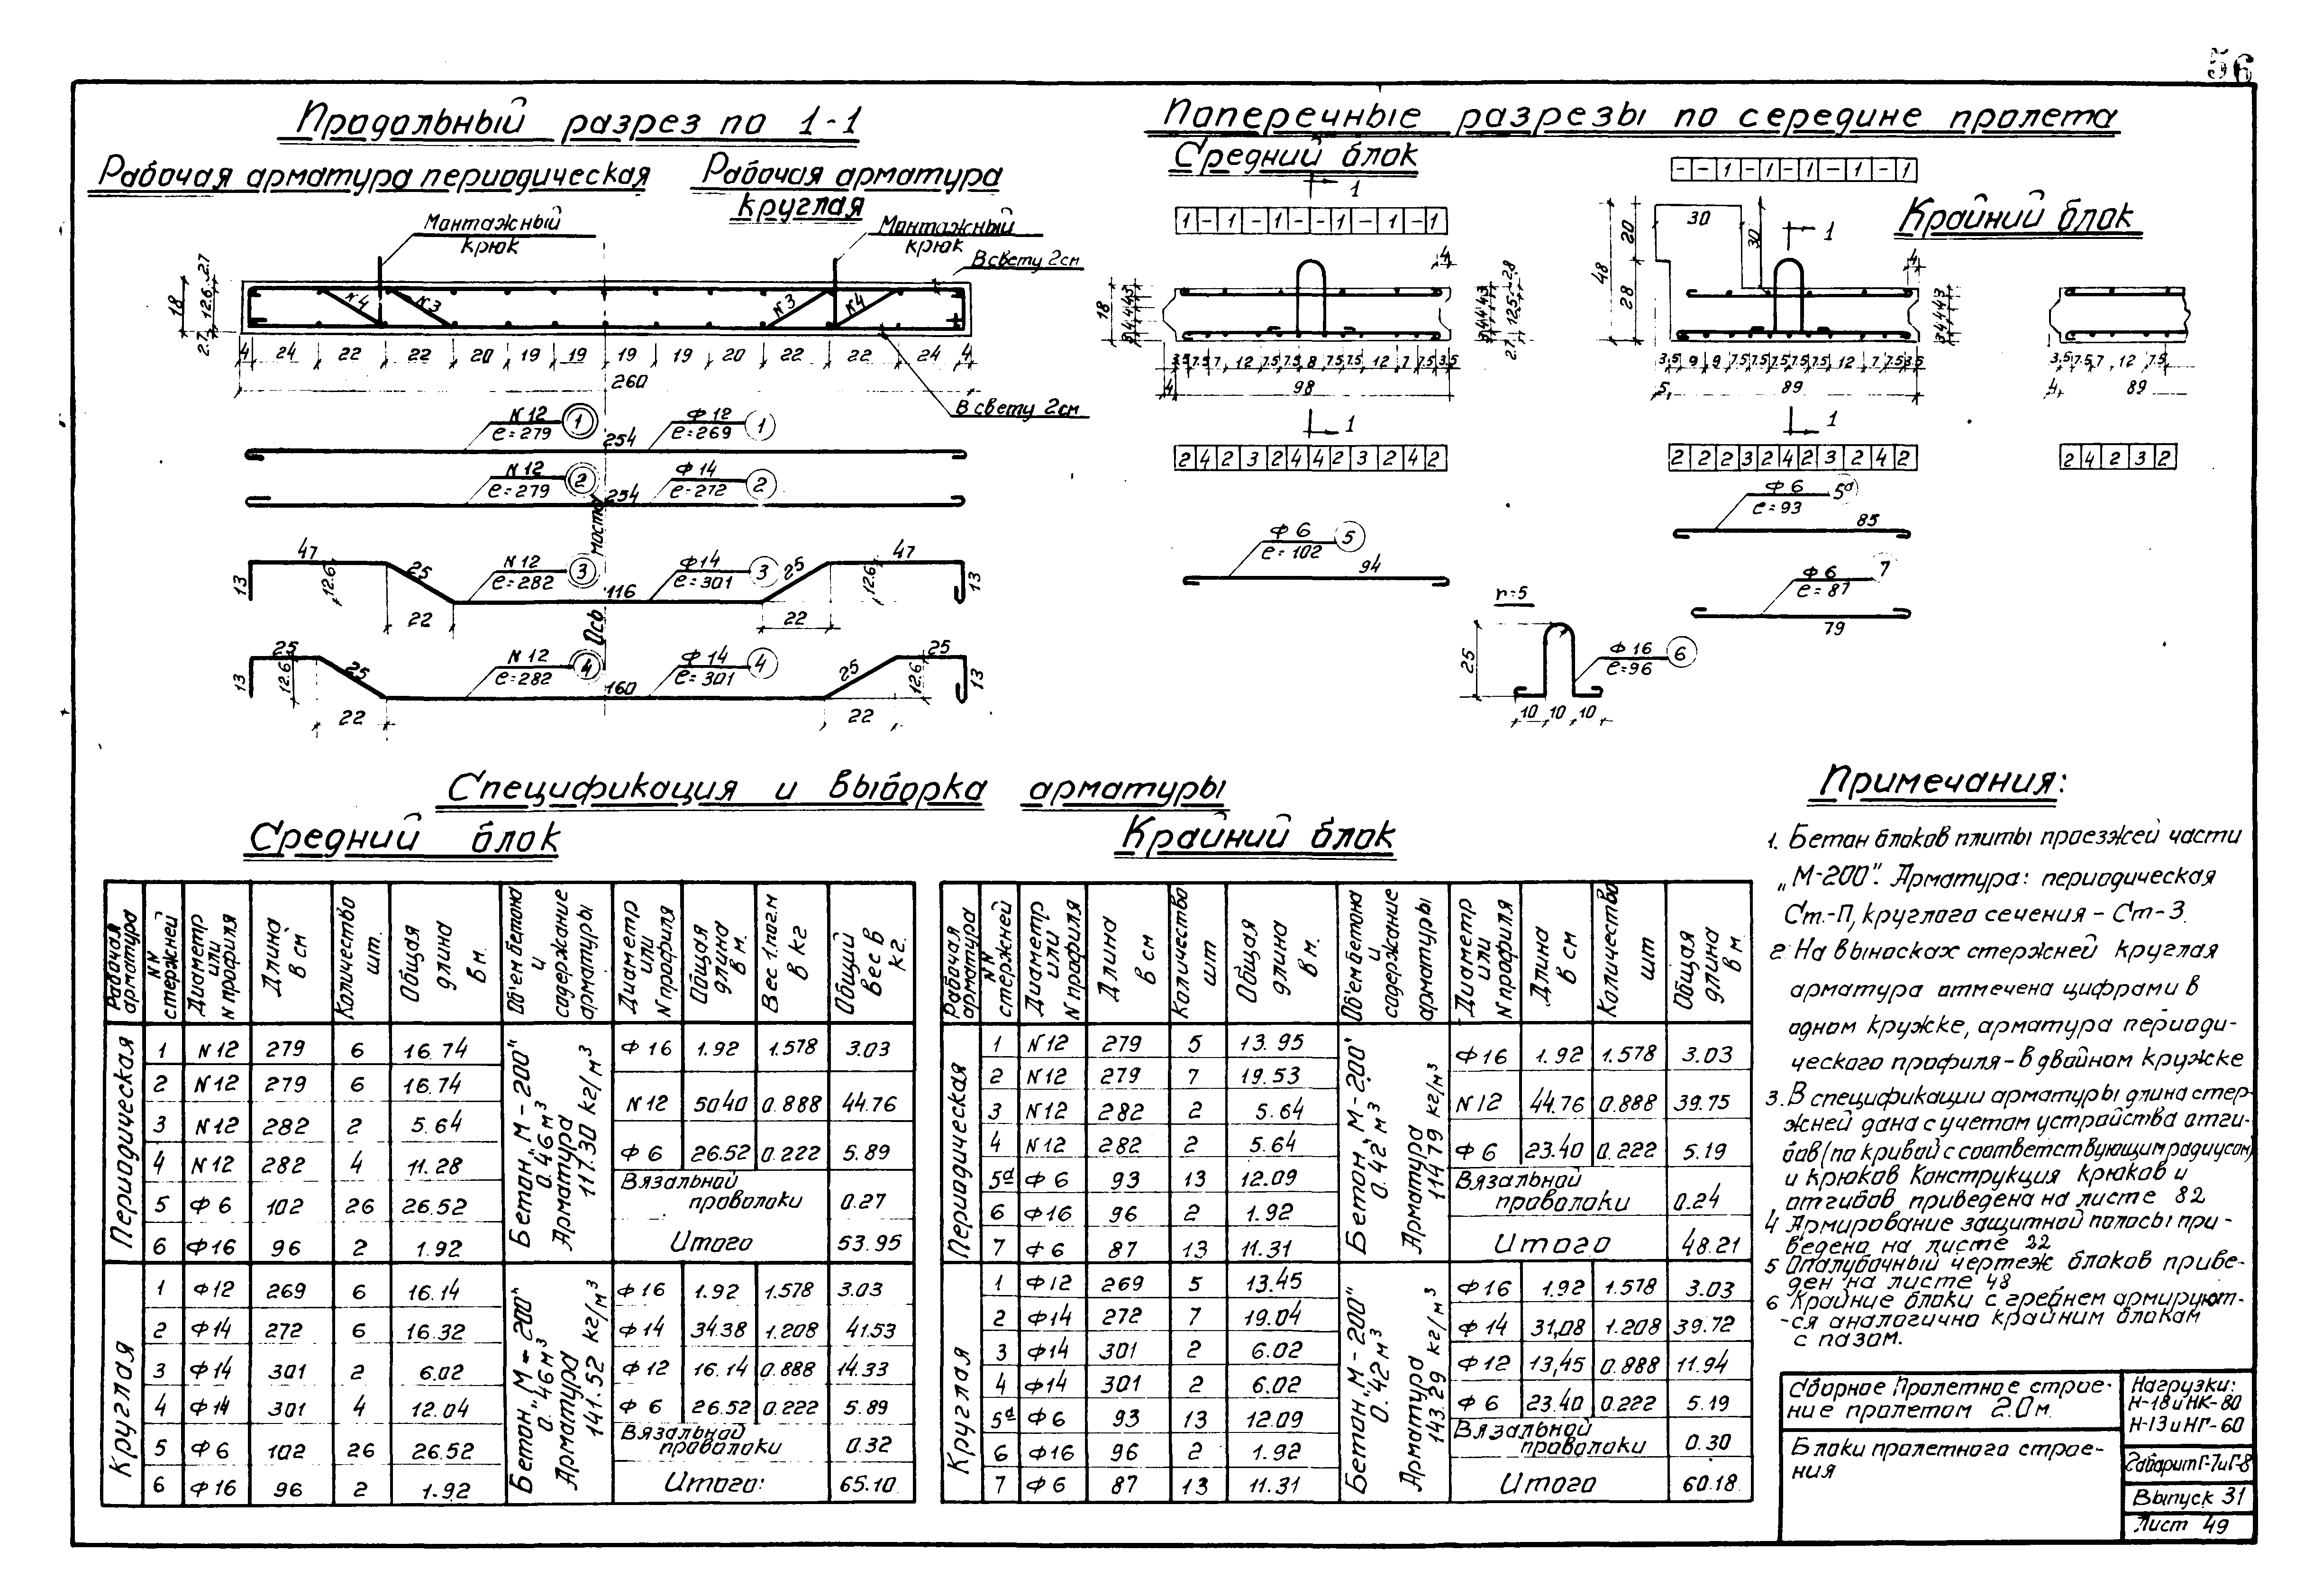 56
Продольный разрез по 1-1
Рабочая арматура периодическая
Рабочая арматура
круглая
Монтажный
крюк
Монтажный
крюк
В свету 2см
18
2.7 12.6 2.7
N4 N3 N3 N4
4 24 22 22 20 19 19 19 19 20 22 22 24 4
260
В свету 2см
N 12
e=279
1
254
Ф 12
e=269
1
N 12
e=279
2
254
Ф 14
e=272
2
Ось моста
47 13 12.6 25 22
N 12
e=282
3
116
Ф14
e=301
3
25 22 12.6 47 13
25 13 12.6 25 22
N 12
e=282
4
160
Ф 14
e=301
4
25 22 12.6 25 13
Поперечные разрезы по середине пролета
Средний блок
1
1 - 1 - 1 - - 1 - 1 - 1
18
3 4 4 4 3
4
3 4 4 4 3
2.7 12.5 2.8
3.5 7.5 7 12 7.5 7.5 8 7.5 7.5 12 7 7.5 3.5
4 98
1
2 4 2 3 2 4 4 2 3 2 4 2
Ф 6
e=102
5
94
- - 1 - 1 - 1 - 1 - 1
Крайний блок
30
30
1
48 20 28
4
3 4 4 4 3
3.5 9 9 7.5 7.5 7.5 7.5 7.5 12 7 7.5 3.5
5 89
1
2 2 2 3 2 4 2 3 2 4 2
3.5 7.5 7 12 7.5
4 89
2 4 2 3 2
Ф 6
e=93
5а
85
Ф 6
e=87
7
79
r=5
25
Ф 16
e=96
6
10 10 10
Спецификация и выборка арматуры
Средний блок
Рабочая арматура
NN стержней
Диаметр или N профиля
Длина в см
Количество шт.
Общая длина в м.
Объем бетона и содержание арматуры
Диаметр или N профиля
Общая длина в м.
Вес 1.пог.м в кг
Общий вес в кг.
Периодическая
1 N12 279 6 16.74
2 N12 279 6 16.74
3 N12 282 2 5.64
4 N12 282 4 11.28
5 Ф 6 102 26 26.52
6 Ф16 96 2 1.92
Бетон „М-200"
0.46 м³
Арматура
117.30 кг/м³
Ф 16 1.92 1.578 3.03
N12 50.40 0.888 44.76
Ф 6 26.52 0.222 5.89
Вязальной
проволоки 0.27
Итого 53.95
Круглая
1 Ф12 269 6 16.14
2 Ф14 272 6 16.32
3 Ф14 301 2 6.02
4 Ф14 301 4 12.04
5 Ф 6 102 26 26.52
6 Ф 16 96 2 1.92
Бетон „М-200"
0.46 м³
Арматура
141.52 кг/м³
Ф 16 1.92 1.578 3.03
Ф14 34.38 1.208 41.53
Ф 12 16.14 0.888 14.33
Ф 6 26.52 0.222 5.89
Вязальной
проволоки 0.32
Итого: 65.10
Крайний блок
Рабочая арматура
NN стержней
Диаметр или N профиля
Длина в см
Количество шт
Общая длина в м.
Объем бетона и содержание арматуры
Диаметр или N профиля
Длина в см
Количество шт
Общая длина в м.
Периодическая
1 N12 279 5 13.95
2 N12 279 7 19.53
3 N12 282 2 5.64
4 N12 282 2 5.64
5а Ф 6 93 13 12.09
6 Ф16 96 2 1.92
7 Ф 6 87 13 11.31
Бетон „М-200"
0.42 м³
Арматура
114.79 кг/м³
Ф16 1.92 1.578 3.03
N12 44.76 0.888 39.75
Ф 6 23.40 0.222 5.19
Вязальной
проволоки 0.24
Итого 48.21
Круглая
1 Ф12 269 5 13.45
2 Ф14 272 7 19.04
3 Ф14 301 2 6.02
4 Ф14 301 2 6.02
5а Ф 6 93 13 12.09
6 Ф16 96 2 1.92
7 Ф 6 87 13 11.31
Бетон „М-200"
0.42 м³
Арматура
143.29 кг/м³
Ф16 1.92 1.578 3.03
Ф 14 31,08 1.208 39.72
Ф12 13,45 0.888 11.94
Ф 6 23.40 0.222 5.19
Вязальной
проволоки 0.30
Итого 60.18
Примечания:
1. Бетон блоков плиты проезжей части
„М-200". Арматура: периодическая
Ст.-П, круглого сечения - Ст-3.
2. На выносках стержней круглая
арматура отмечена цифрами в
одном кружке, арматура периоди-
ческого профиля - в двойном кружке
3. В спецификации арматуры длина стер-
жней дана с учетом устройства отги-
бов (по кривой с соответствующим радиусом)
и крюков Конструкция крюков и
отгибов приведена на листе 82
4 Армирование защитной полосы при-
ведено на листе 22
5 Опалубочный чертеж блоков приве-
ден на листе 48
6 Крайние блоки с гребнем армируют-
-ся аналогично крайним блокам
с пазом.
Сборное пролетное строе-
ние пролетом 2.0м.
Нагрузки:
Н-18 и НК-80
Н-13 и НГ-60
Блоки пролетного строе-
ния
Габарит Г-7 и Г-8
Выпуск 31
Лист 49